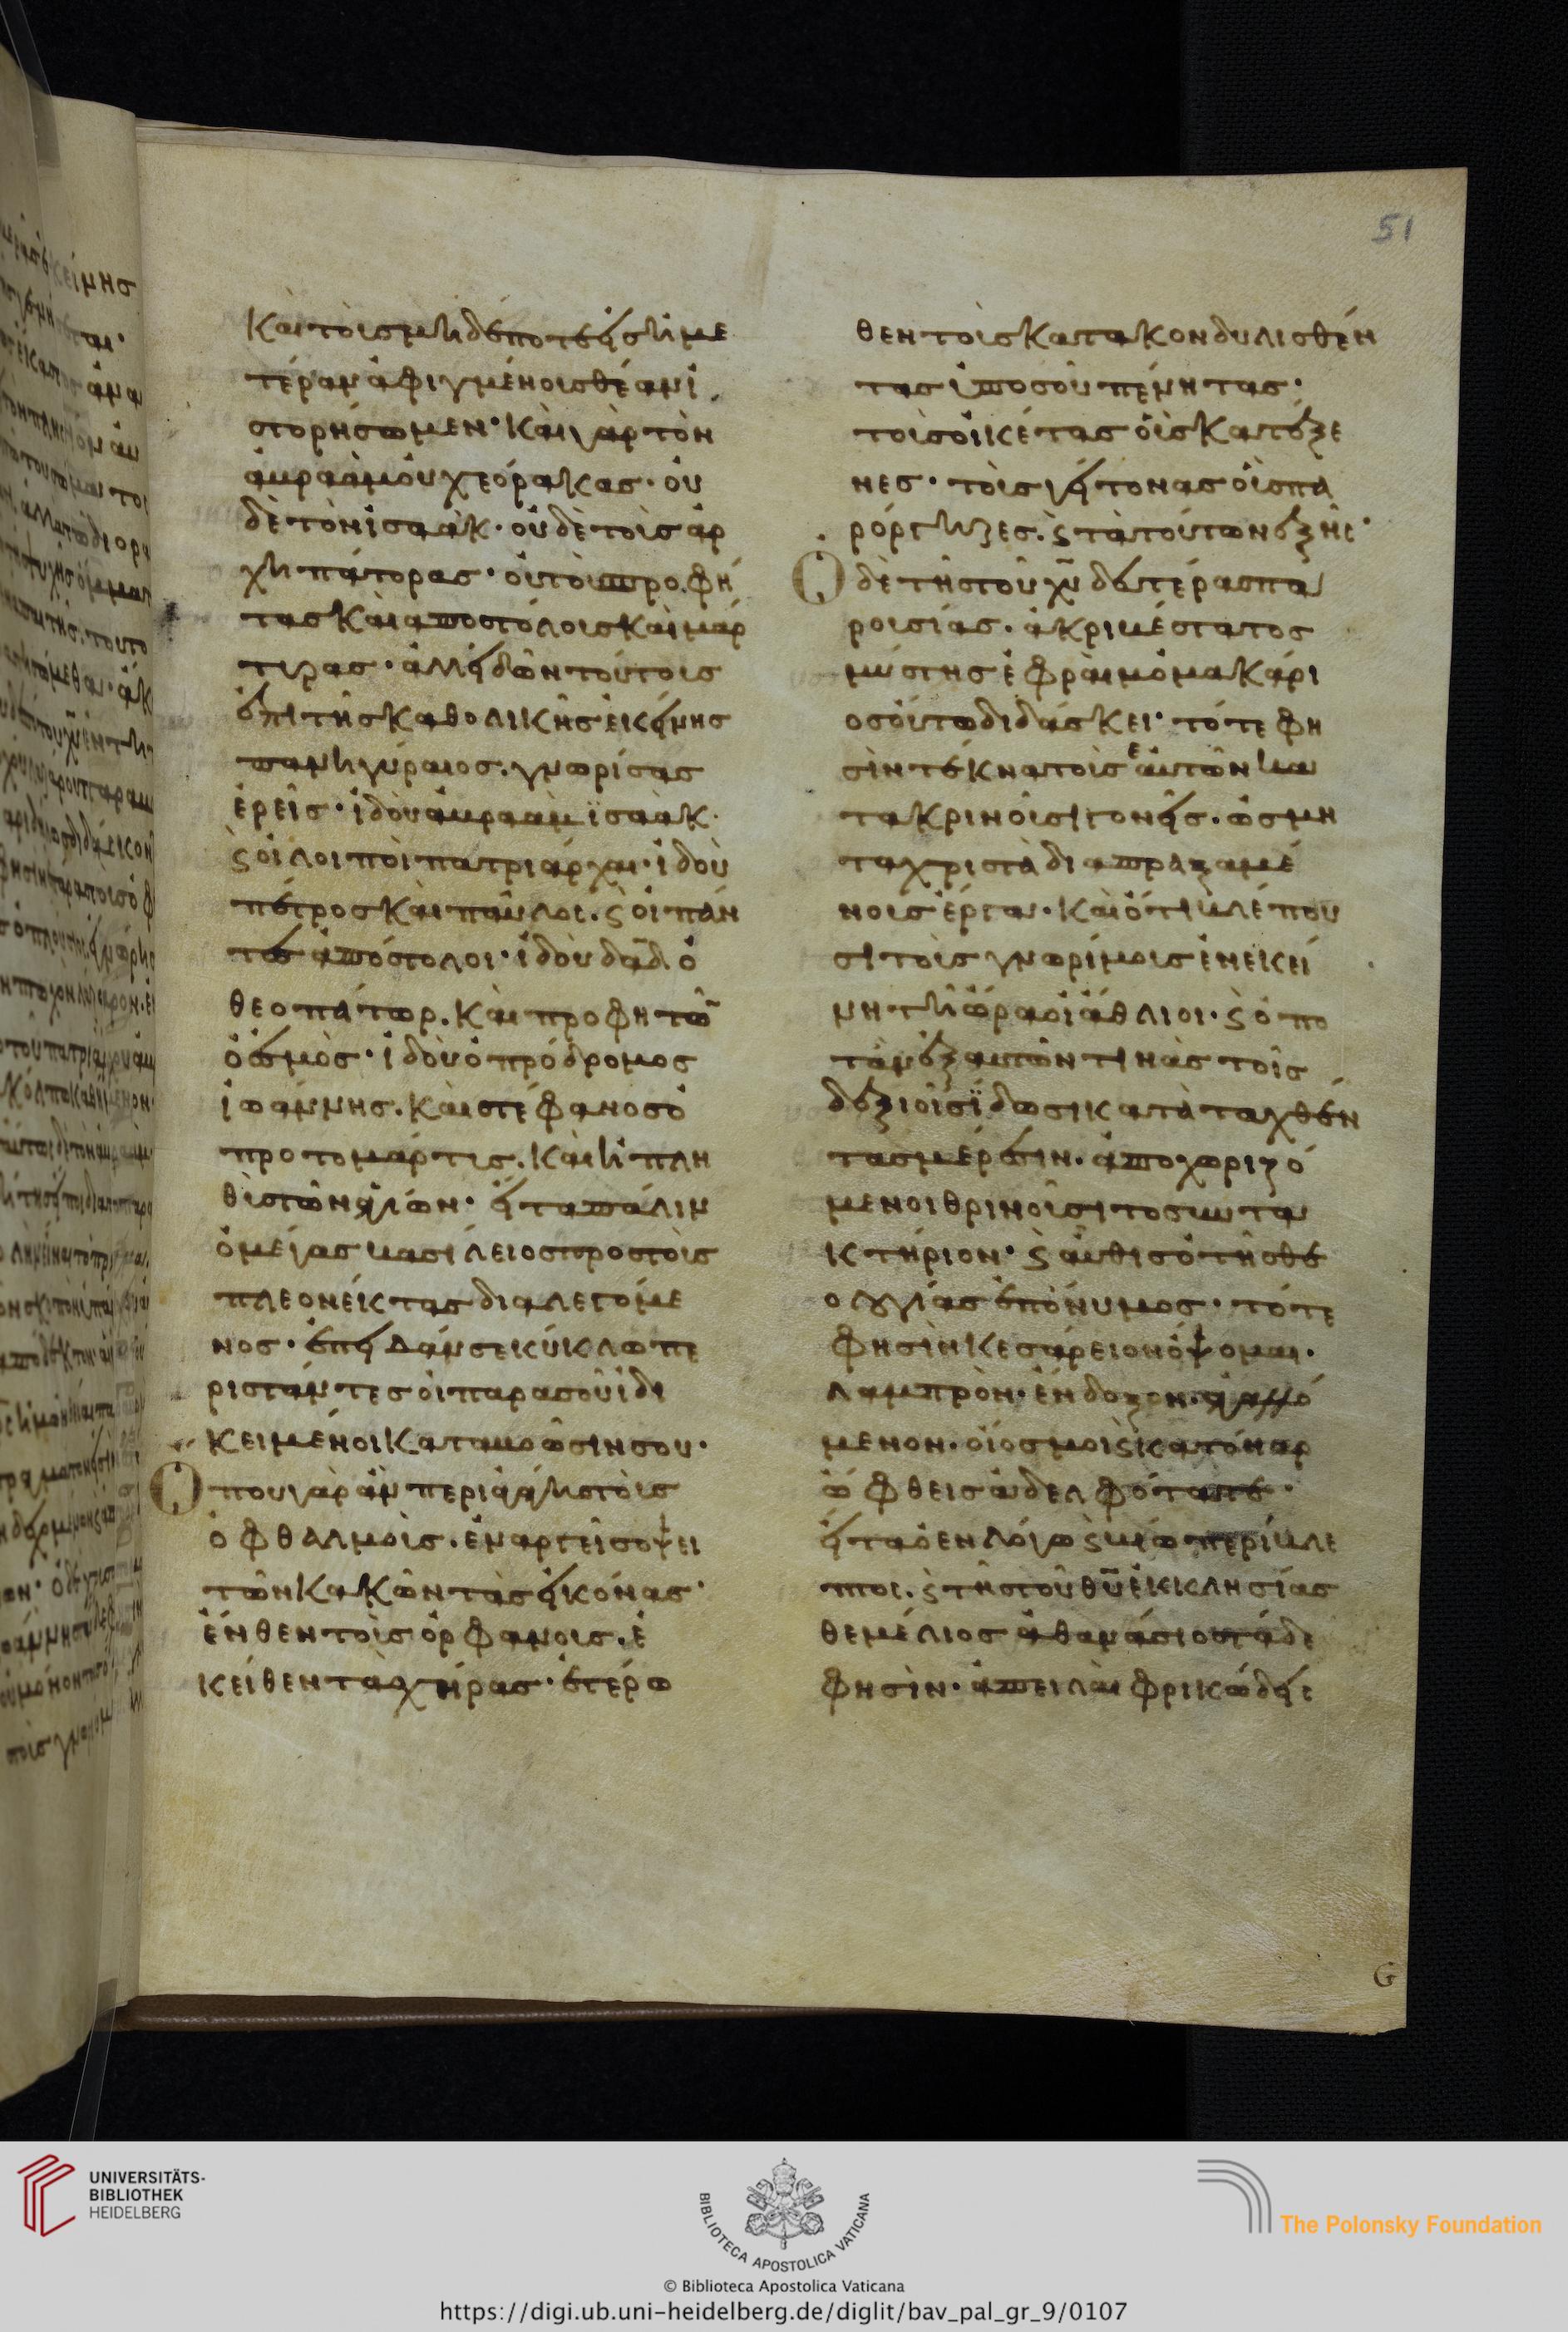 51
Καὶ τοῖς μὴ δέποτε εἰς ἡμε
τέραν ἀφιγμένοις θέαν ἱ
στορήσωμεν· Καὶ γὰρ τὸν
ἀβραὰμ οὐχ εόρακας· οὐ
δὲ τὸν ἰσαάκ· οὐδὲ τοὶς ἀρ
χηπάτορας· οὐ τοὶ προφή
τας Καὶ αποστόλοις Καὶ μάρ
τιρας· ἀλλ εἰδὼν τούτοις
ἐπὶ τῆς καθολικῆς ἐικείνης
πανηγύραιος. γνωρίσας
ἐρεῖς· ἰδοὺ ἀβρααμ ϊσαάκ.
ϛ οἱ λοιποὶ πατριάρχαι· ἰδοὺ
πέτρος Καὶ παῦλοι. ϛ οἱ πάν
τες ἀπόστολοι· ἰδοὺ δαδ ὁ
θεοπάτωρ. Καὶ προφητῶ
ὁ ἐσμὸς· ἰδοὺ ὁ πρόδρομος
ἰωάννης. Καὶ στέφανος ὁ
προτομάρτις. Καὶ ἡ πλη
θὶς τῶν ἁγίων· εἶτα πάλιν
ὁ μέγας βασίλειος προς τοὶς
πλεονέκτας διαλεγόμε
νος· ἐπει Δάν σε κύκλω πε
ριστάντες οἱ παρα σοῦ ἰδι
κειμένοι Καταβοῶσιν σου·
Ὅπου γὰρ ἂν περιαγάγης τοὶς
ὀφθαλμοὶς. ἐναργεῖς οψει
τῶν Κακῶν τὰς εἰκόνας·
ἔνθεν τοὶς ὀρφανοις. ἐ
κείθεν τὰ χήρας· ἑτέρω
θεν τοὶς κατακονδυλισθέν
τας ὑπο σοῦ πένητας·
τοὶς οἰκέτας οἷς Κατέξε
νες· τοὶς γείτονας οἷς πα
ρόργηζες. ϛ τὰ τούτων ἑξῆς·
Ὁ δὲ τῆς τοῦ χυ δευτέρας πα
ροισίας. ἀκριβέστατος
μύστης ἐφραὶμ ὁ μακάρι
ος ὅυτω διδάσκει· τότε φη
σὶν τέκνα τοὶς ἑαυτῶν κα
τακρινοῖσι γονεῖς. ὡς μη
τα χριστὰ διαπραξαμέ
νοις ἔργα· Καὶ ὅτι βλέπου
σι τοὶς γνωρίμοις ἐν ἐικεί
νη τῆ ὥρα οἱ ἄθλιοι· ϛ ὁπο
τὰν ἐξ αυτῶν τινὰς τοῖς
δεξιοῖς ΐδωσι κατὰταχθέν
τας μέρεσιν. ἀποχωριζό
μενοι θρινοῖσι τος ωτα
ικτήριον· ϛ αὖθις ὁ τῆς θε
ολογίας ἐπόνυμος· τότε
φησὶν Κεσάρειον ὄψομαι.
λαμπρὸν. ἔνδοξον. ἀγαλλό
μενον. οἷος μοι ϛ κατ όναρ
ὤφθεις ἀδελφότατε·
εἶτα ὁ εν λόγω ϛ βίω περίβλε
πτοι. ϛ τῆς τοῦ θυ ἐκκλησίας
θεμέλιος ἀθανάσιος τάδε
φησὶν· ἀπειλαὶ φρικώδεις
G
UNIVERSITÄTS-
BIBLIOTHEK
HEIDELBERG
BIBLIOTECA APOSTOLICA VATICANA
The Polonsky Foundation
© Biblioteca Apostolica Vaticana
https://digi.ub.uni-heidelberg.de/diglit/bav_pal_gr_9/0107